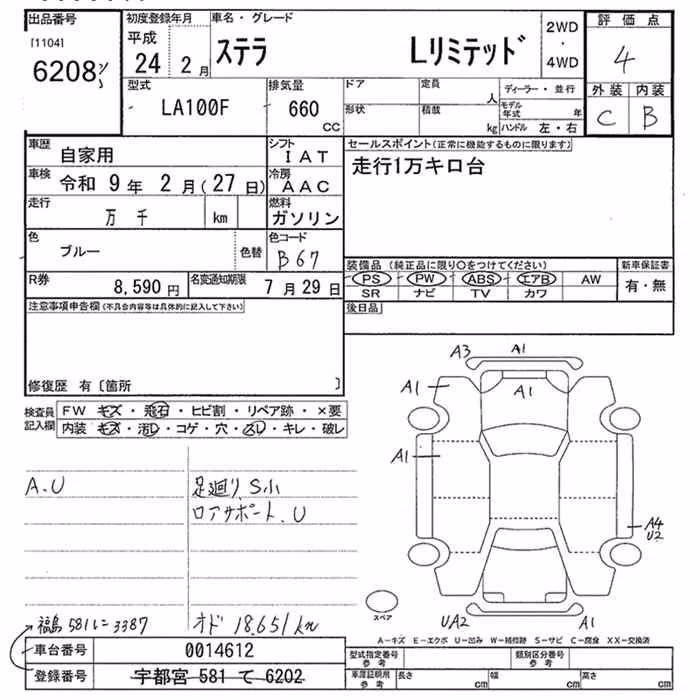 出品番号
[1104]
6208
初度登録年月
平成
24 2月
車名・グレード
ステラ Lリミテッド
2WD
・
4WD
評価点
4
外装 内装
C B
型式
LA100F
排気量
660
CC
ドア
定員
人
形状
積載
kg
ディーラー・並行
モデル年式 年
ハンドル 左・右
車歴
自家用
シフト
IAT
車検
令和 9年 2月(27日)
冷房
AAC
走行
万 千 km
燃料
ガソリン
色
ブルー
色替
色コード
B67
R券
8,590円
名変通知期限
7月29日
セールスポイント(正常に機能するものに限ります)
走行1万キロ台
装備品(純正品に限り○をつけてください)
PS PW ABS エアB AW
SR ナビ TV カワ
新車保証書
有・無
後日品
注意事項申告欄(不具合内容等は具体的に記入して下さい)
修復歴 有〔箇所 〕
検査員記入欄
FW キズ・飛石・ヒビ割・リペア跡・×要
内装 キズ・汚レ・コゲ・穴・スレ・キレ・破レ
A.U
足廻り、S小
ロアサポート、U
A3 A1
A1 A1
A1
A4
U2
UA2 A1
スペア
福島 581 に 3387
オド 18,651km
A-キズ E-エクボ U-凹み W-補修跡 S-サビ C-腐食 XX-交換済
車台番号
0014612
登録番号
宇都宮 581 て 6202
型式指定番号
参考
類別区分番号
参考
車庫証明用
参考
長さ cm 幅 cm 高さ cm